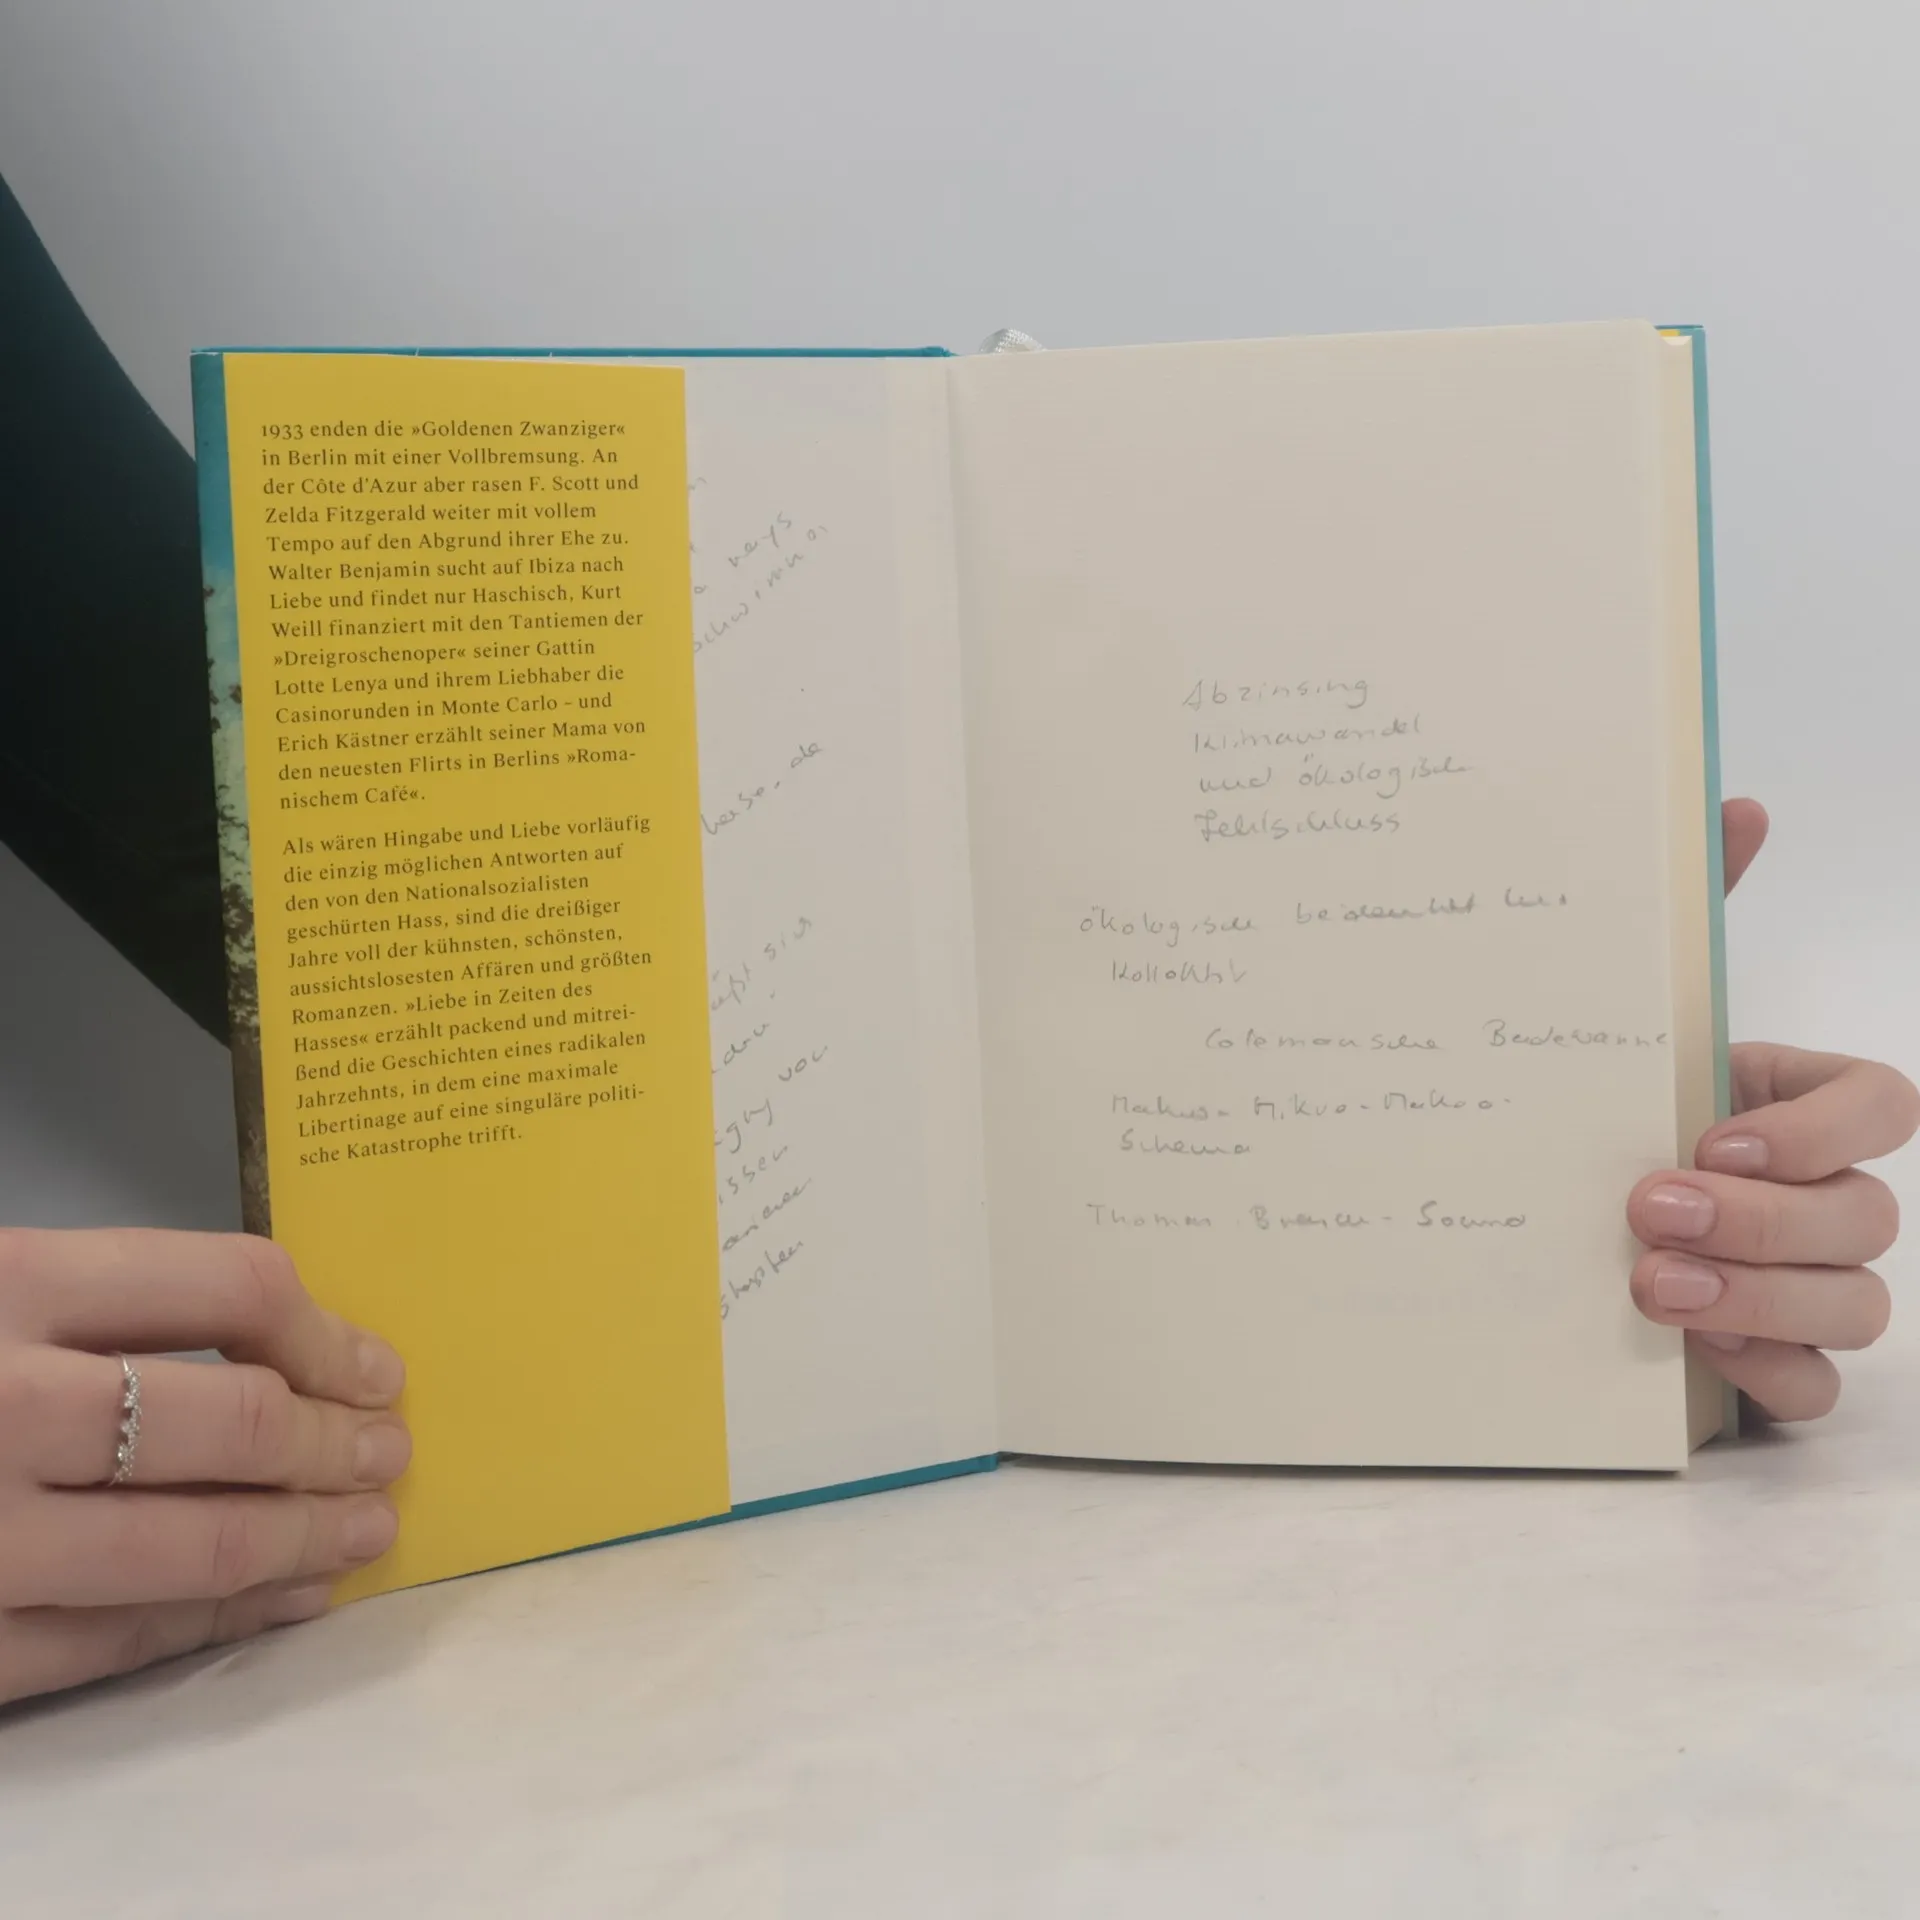 1933 enden die »Goldenen Zwanziger«
in Berlin mit einer Vollbremsung. An
der Côte d'Azur aber rasen F. Scott und
Zelda Fitzgerald weiter mit vollem
Tempo auf den Abgrund ihrer Ehe zu.
Walter Benjamin sucht auf Ibiza nach
Liebe und findet nur Haschisch, Kurt
Weill finanziert mit den Tantiemen der
»Dreigroschenoper« seiner Gattin
Lotte Lenya und ihrem Liebhaber die
Casinorunden in Monte Carlo – und
Erich Kästner erzählt seiner Mama von
den neuesten Flirts in Berlins »Roma-
nischem Café«.
Als wären Hingabe und Liebe vorläufig
die einzig möglichen Antworten auf
den von den Nationalsozialisten
geschürten Hass, sind die dreißiger
Jahre voll der kühnsten, schönsten,
aussichtslosesten Affären und größten
Romanzen. »Liebe in Zeiten des
Hasses« erzählt packend und mitrei-
ßend die Geschichten eines radikalen
Jahrzehnts, in dem eine maximale
Libertinage auf eine singuläre politi-
sche Katastrophe trifft.
Abzinsing
Klimawandel
und ökologische
Fehlschluss
ökologische
Colemansche Badewanne
Schema
Thomas Sound